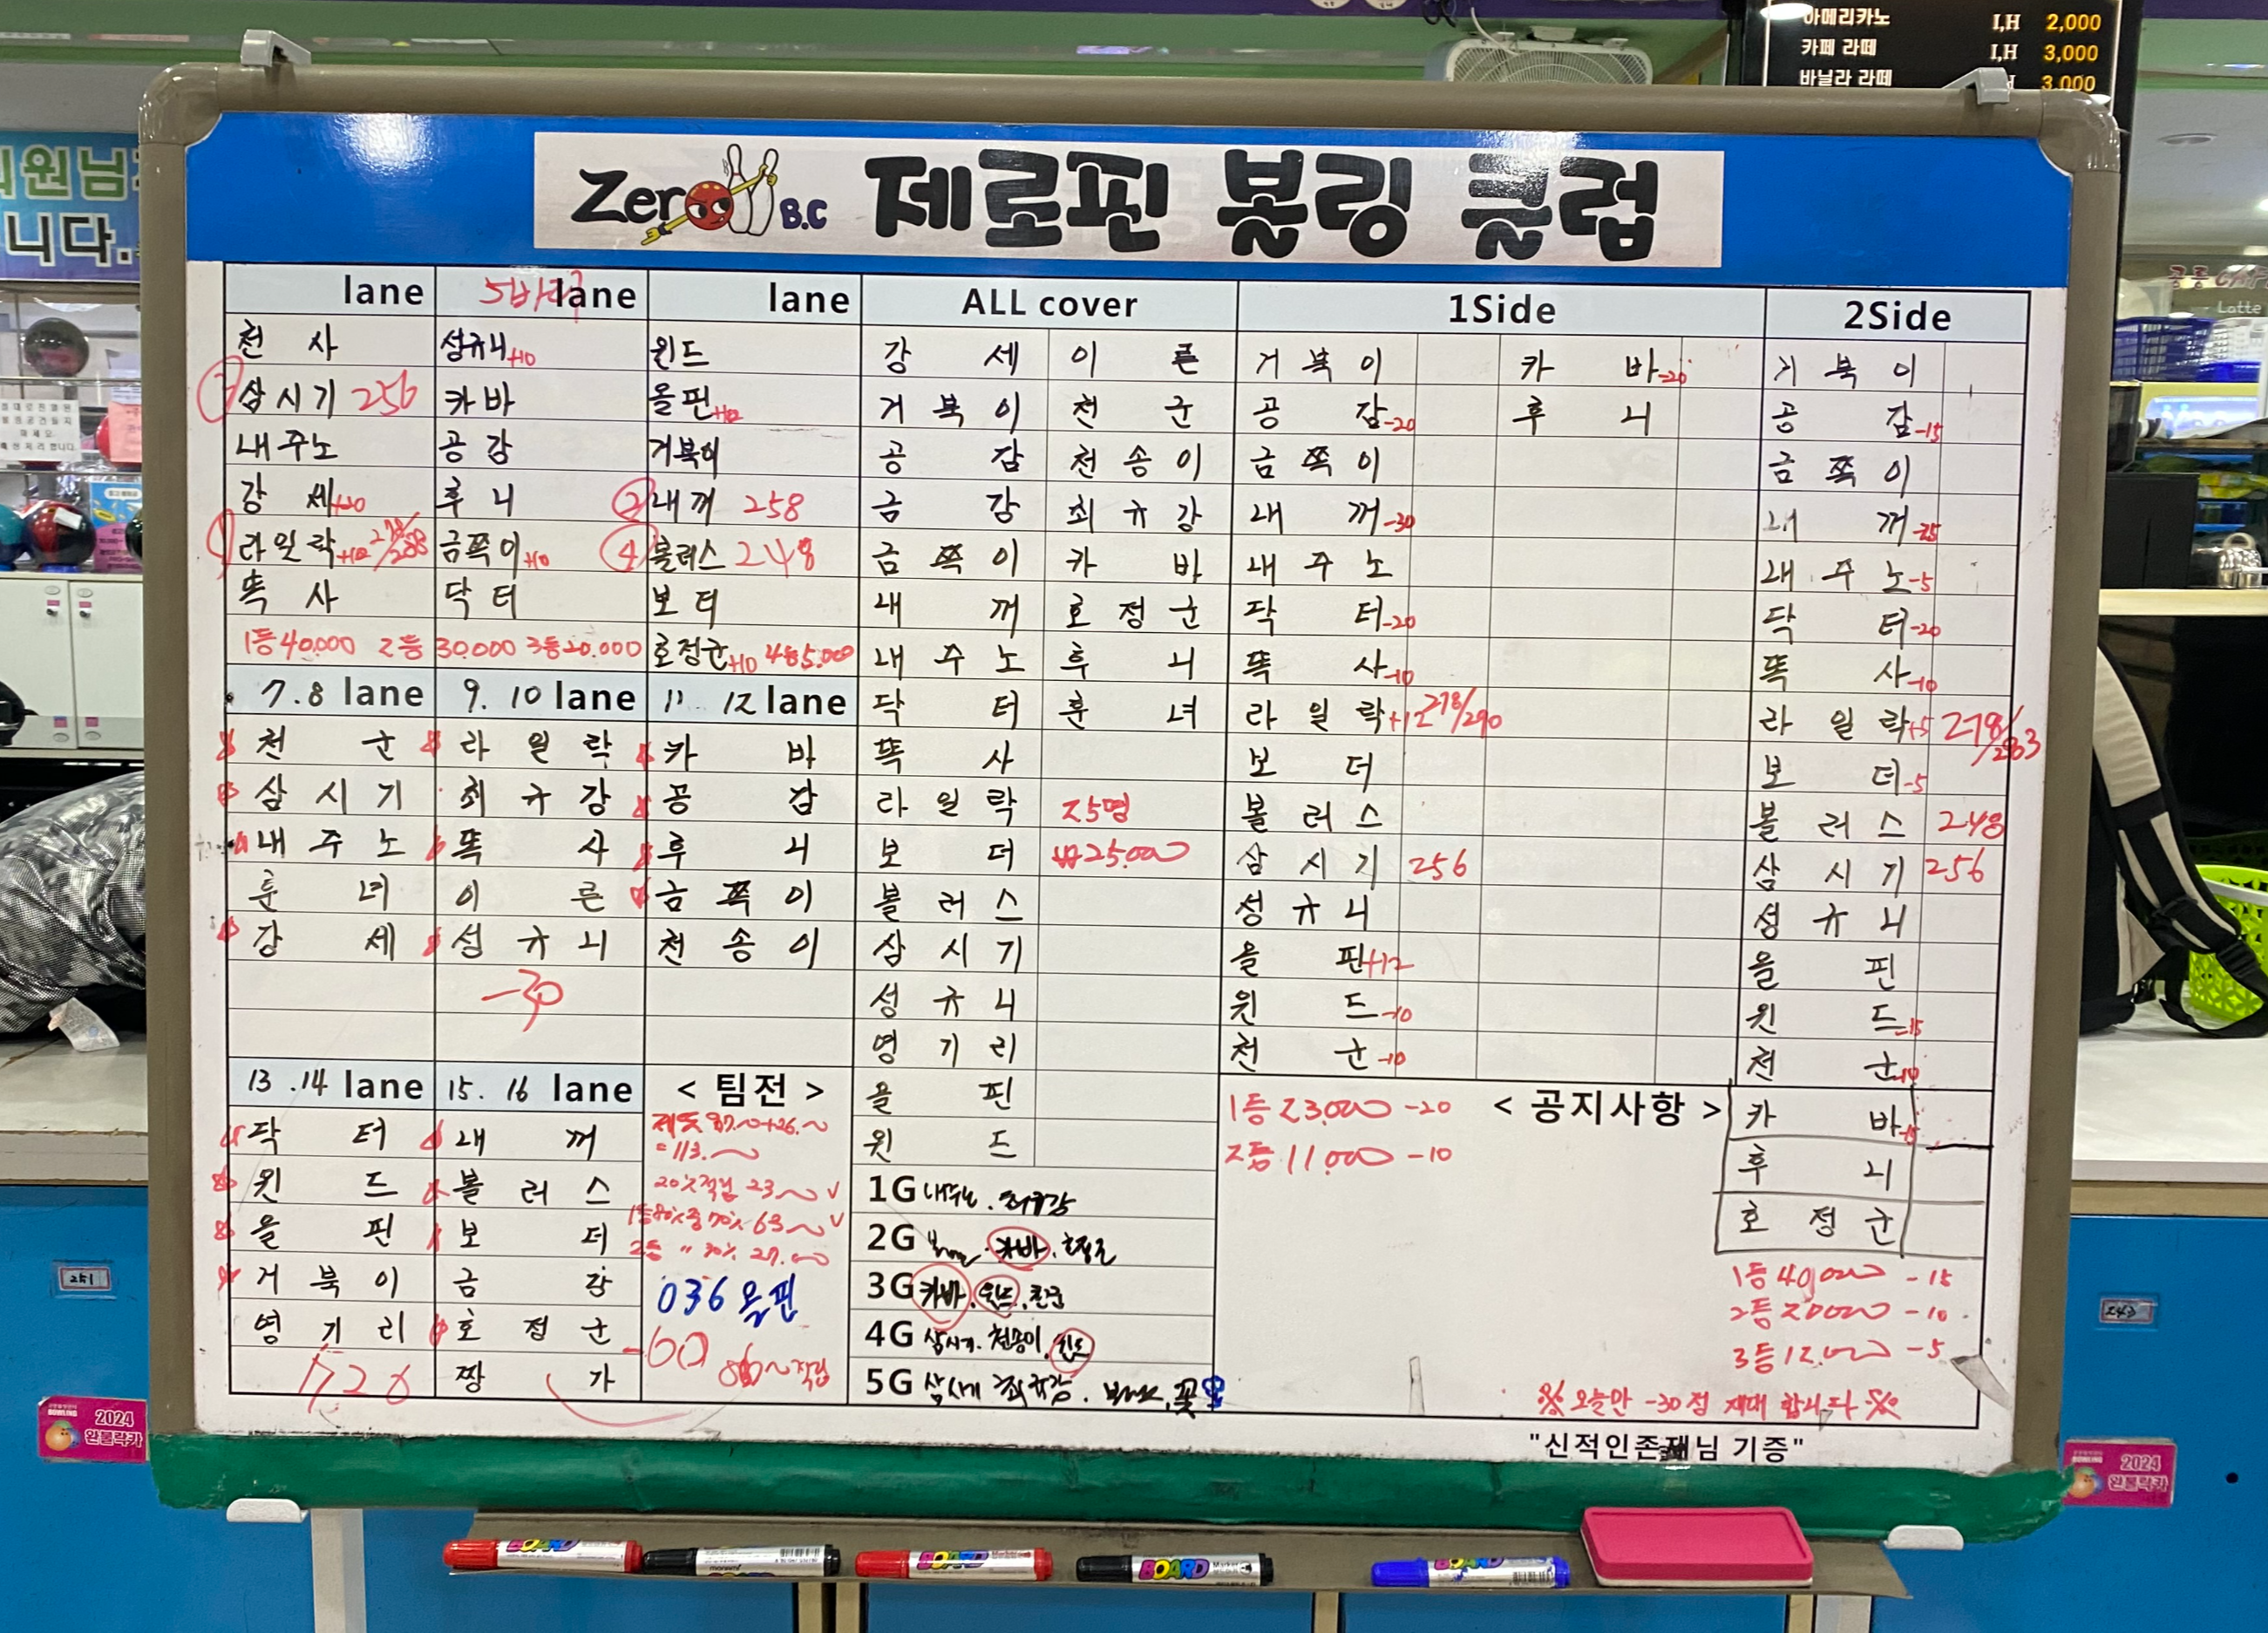 아메리카노 I,H 2,000
카페 라떼 I,H 3,000
바닐라 라떼 H 3,000
Zero B.C 제로핀 볼링 클럽
lane lane lane ALL cover 1Side 2Side
천사 성규니+10 윈드
삼시기 256 카바 올핀+12
내주노 공감 거북이
강세+20 후니 ② 내꺼 258
라일락+12 278/288 금쪽이+10 ④ 볼러스 248
똑사 닥터 보더
1등 40,000 2등 30,000 3등 20,000 호정군+10 4등 5,000
7.8 lane 9.10 lane 11.12 lane
천군 라일락 카바
삼시기 최규강 공감
내주노 똑사 후니
훈녀 이른 금쪽이
강세 성규니 천송이
-30
13.14 lane 15.16 lane
닥터 내꺼
윈드 볼러스
올핀 보더
거북이 금강
영기리 호정군
짱가
< 팀전 >
= 113.
036 올핀
-60
강세 이른
거북이 천군
공감 천송이
금강 최규강
금쪽이 카바
내꺼 호정군
내주노 후니
닥터 훈녀
똑사
라일락 25명
보더 ₩25,000
볼러스
삼시기
성규니
영기리
올핀
윈드
1G
2G 카바. 호정군
3G 카바. 윈드.
4G 삼시기. 천송이. 윈드
5G 삼시기 최규강.
거북이 카바-20
공감-20 후니
금쪽이
내꺼-30
내주노
닥터-20
똑사-10
라일락+12 278/290
보더
볼러스
삼시기 256
성규니
올핀+12
윈드-10
천군-10
거북이
공감-15
금쪽이
내꺼-25
내주노-5
닥터-20
똑사-10
라일락+5 278/283
보더-5
볼러스 248
삼시기 256
성규니
올핀
윈드-15
천군-10
카바-15
후니
호정군
1등 23,000 -20
2등 11,000 -10
< 공지사항 >
1등 40,000 -15
2등 20,000 -10
3등 12,000 -5
※ 오늘만 -30점 재대 합니다 ※
"신적인존재님 기증"
251
243
BOWLING 2024
완볼락카
2024
완볼락카
BOARD
BOARD
BOARD
BOARD
Latte
니다.